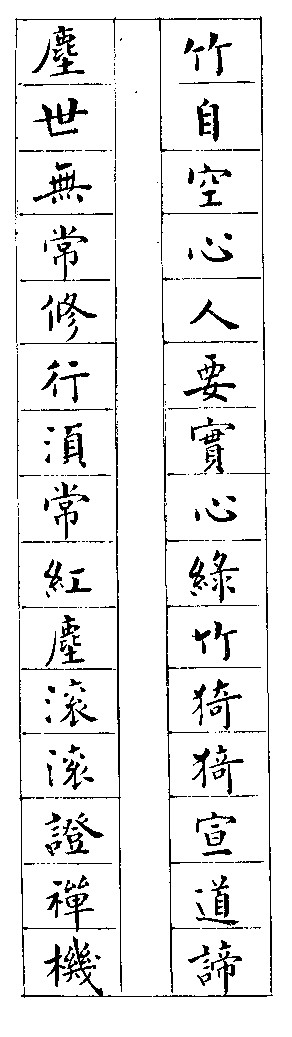 竹自空心人要實心綠竹猗猗宣道諦
塵世無常修行須常紅塵滾滾證禪機